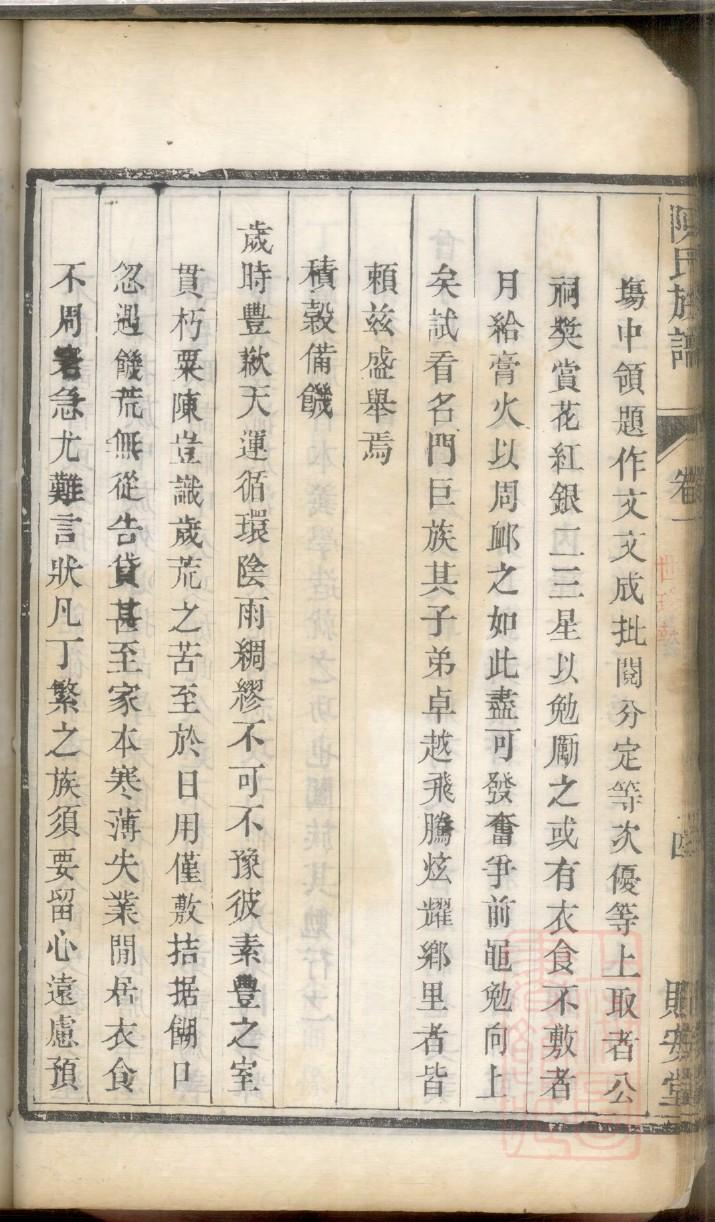 陳氏族譜
卷一
四
賜安堂
塲中領題作文文成批閱分定等次優等上取者公
祠奬賞花紅銀二三星以勉勵之或有衣食不敷者
月給膏火以周䘏之如此盡可發奮爭前黽勉向上
矣試看名門巨族其子弟卓越飛騰炫耀鄉里者皆
賴兹盛舉焉
積穀備饑
歲時豐歉天運循環陰雨綢繆不可不豫彼素豐之室
貫朽粟陳豈識歲荒之苦至於日用僅敷拮据餬口
忽遇饑荒無從告貸甚至家本寒薄失業閒居衣食
不周窘急尤難言狀凡丁繁之族須要留心遠慮預